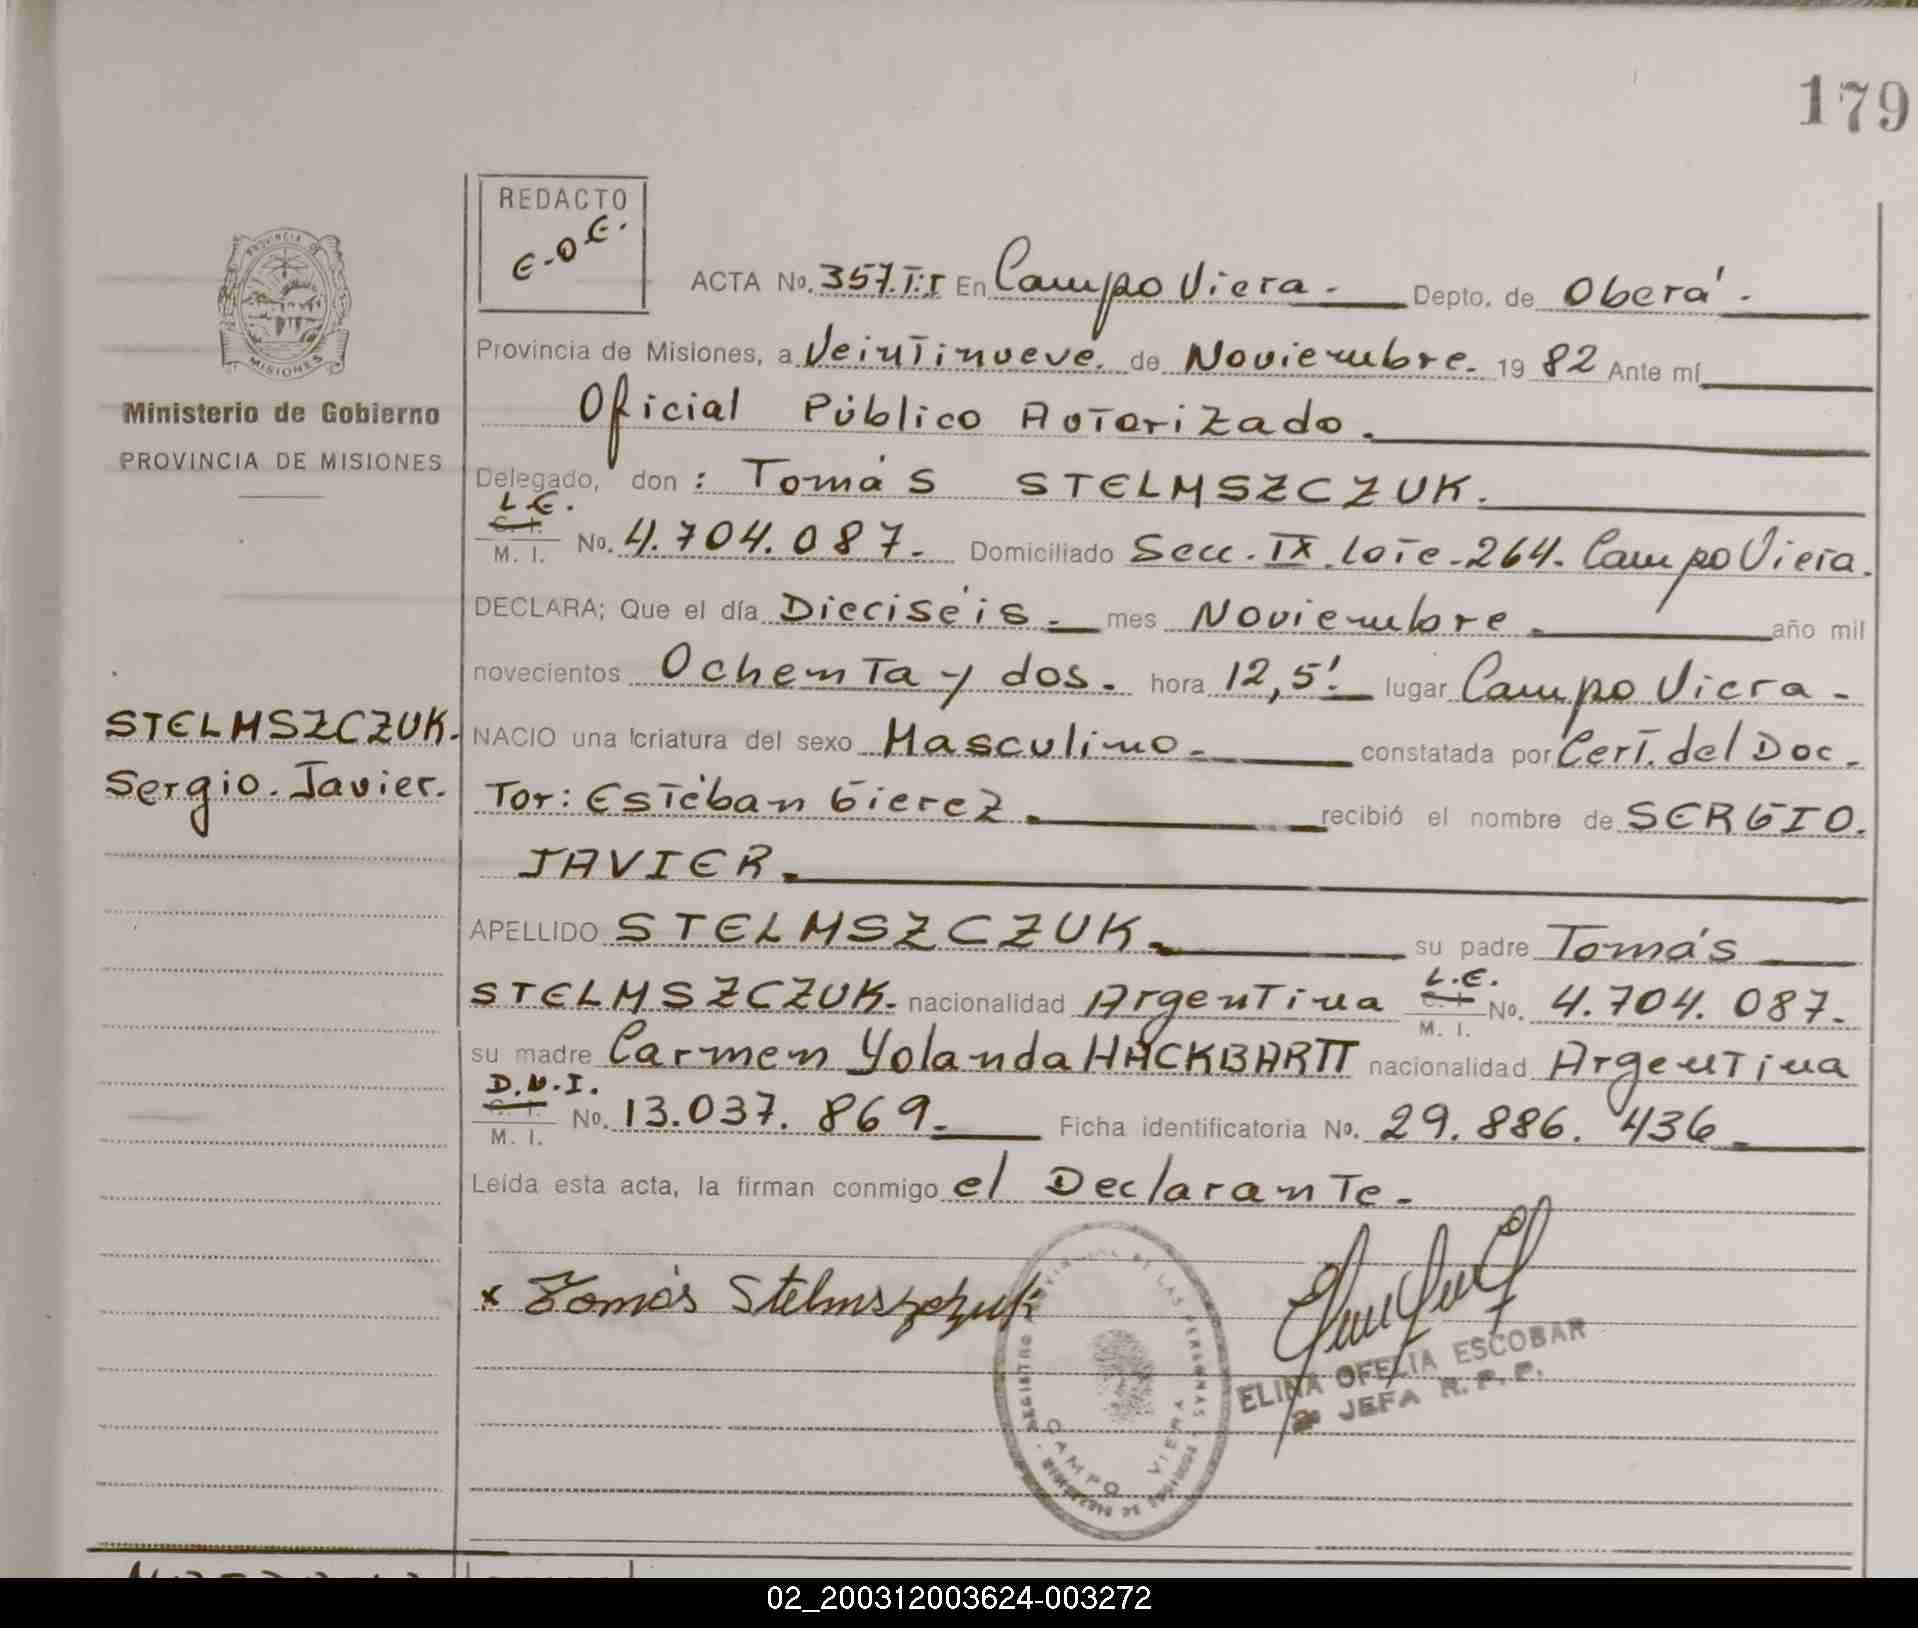 179
REDACTO
E.O.E.
PROVINCIA DE
MISIONES
Ministerio de Gobierno
PROVINCIA DE MISIONES
STELMSZCZUK.
Sergio. Javier.
ACTA No. 357.T:I En Campo Viera.- Depto. de Oberá.
Provincia de Misiones, a Veintinueve. de Noviembre. 19 82 Ante mí
Oficial Público Autorizado.
Delegado, don : Tomás STELMSZCZUK.
L.E.
C. I.
M. I. No. 4.704.087. Domiciliado Secc. IX. Lote-264. Campo Viera.
DECLARA; Que el día Dieciséis. mes Noviembre. año mil
novecientos Ochenta y dos. hora 12,5'. lugar Campo Viera-
NACIO una criatura del sexo Masculino. constatada por Cert. del Doc-
Tor: Estéban Gierez recibió el nombre de SERGIO.
JAVIER.
APELLIDO STELMSZCZUK. su padre Tomás
STELMSZCZUK. nacionalidad Argentina L.E. C. I. M. I. No. 4.704.087.
su madre Carmen Yolanda HACKBARTT nacionalidad Argentina
D.N.I.
C. I.
M. I. No. 13.037.869. Ficha identificatoria No. 29.886.436
Leída esta acta, la firman conmigo el Declarante.
x Tomás Stelmszczuk
REGISTRO PROVINCIAL DE LAS PERSONAS
CAMPO VIERA
ELINA OFELIA ESCOBAR
JEFA R.P.P.
02_200312003624-003272